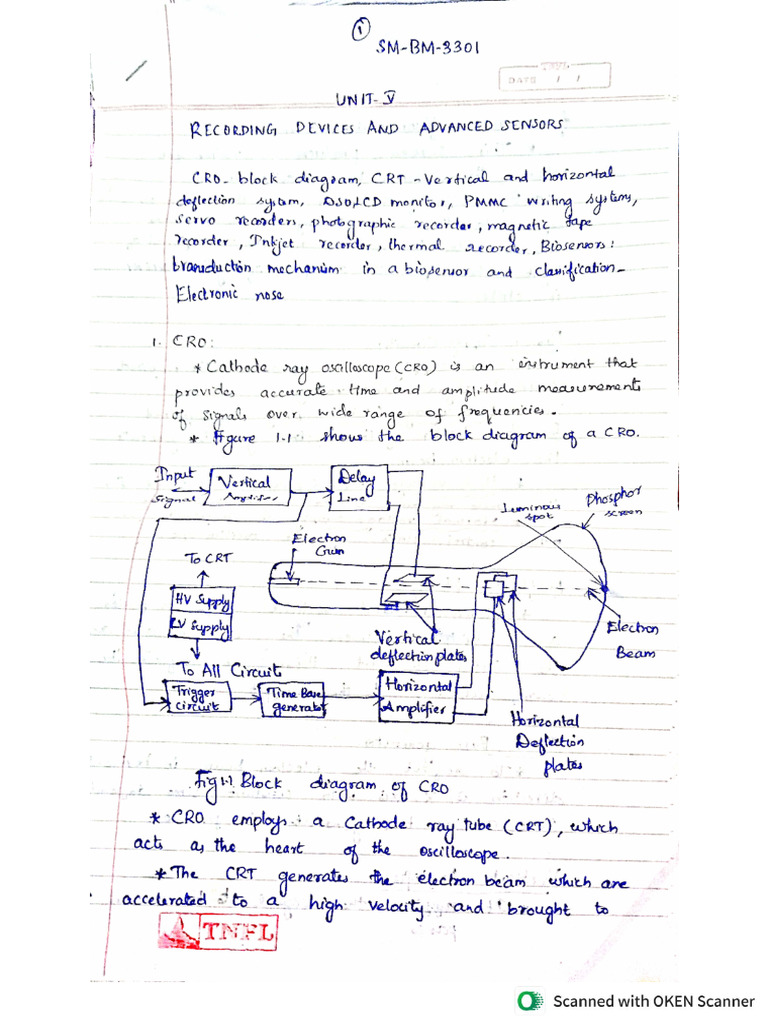 1
SM-BM-3301
DATE / /
UNIT-V
RECORDING DEVICES AND ADVANCED SENSORS
CRO- block diagram, CRT -Vertical and horizontal
deflection system, DSO, LCD monitor, PMMC writing systems,
servo recorders, photographic recorder, magnetic tape
recorder, Inkjet recorder, thermal recorder, Biosensors:
transduction mechanism in a biosensor and classification-
Electronic nose
1. CRO:
* Cathode ray oscilloscope (CRO) is an instrument that
provides accurate time and amplitude measurements
of signals over wide range of frequencies.
* Figure 1.1 shows the block diagram of a CRO.
Input
Signal
Vertical
Amplifier
Delay
Line
Luminous
spot
Phosphor
screen
Electron
Gun
To CRT
HV Supply
LV Supply
Vertical
deflection plates
Electron
Beam
To All Circuit
Trigger
circuit
Time Base
generator
Horizontal
Amplifier
Horizontal
Deflection
plates
Fig 1.1 Block diagram of CRO
* CRO employs a Cathode ray tube (CRT), which
acts as the heart of the oscilloscope.
* The CRT generates the electron beam which are
accelerated to a high velocity and brought to
TNFL
Scanned with OKEN Scanner